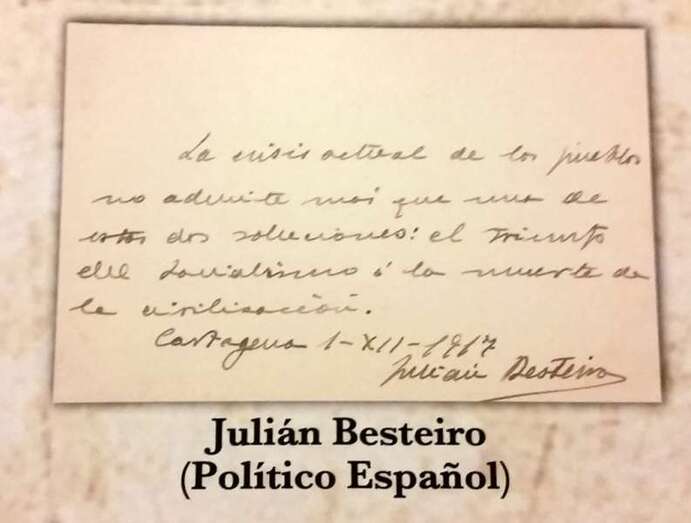 La crisis actual de los pueblos
no admite más que una de
estas dos soluciones: el triunfo
del Socialismo ó la muerte de
la civilisación.
Cartagena 1-XII-1917
Julián Besteiro
Julián Besteiro
(Político Español)